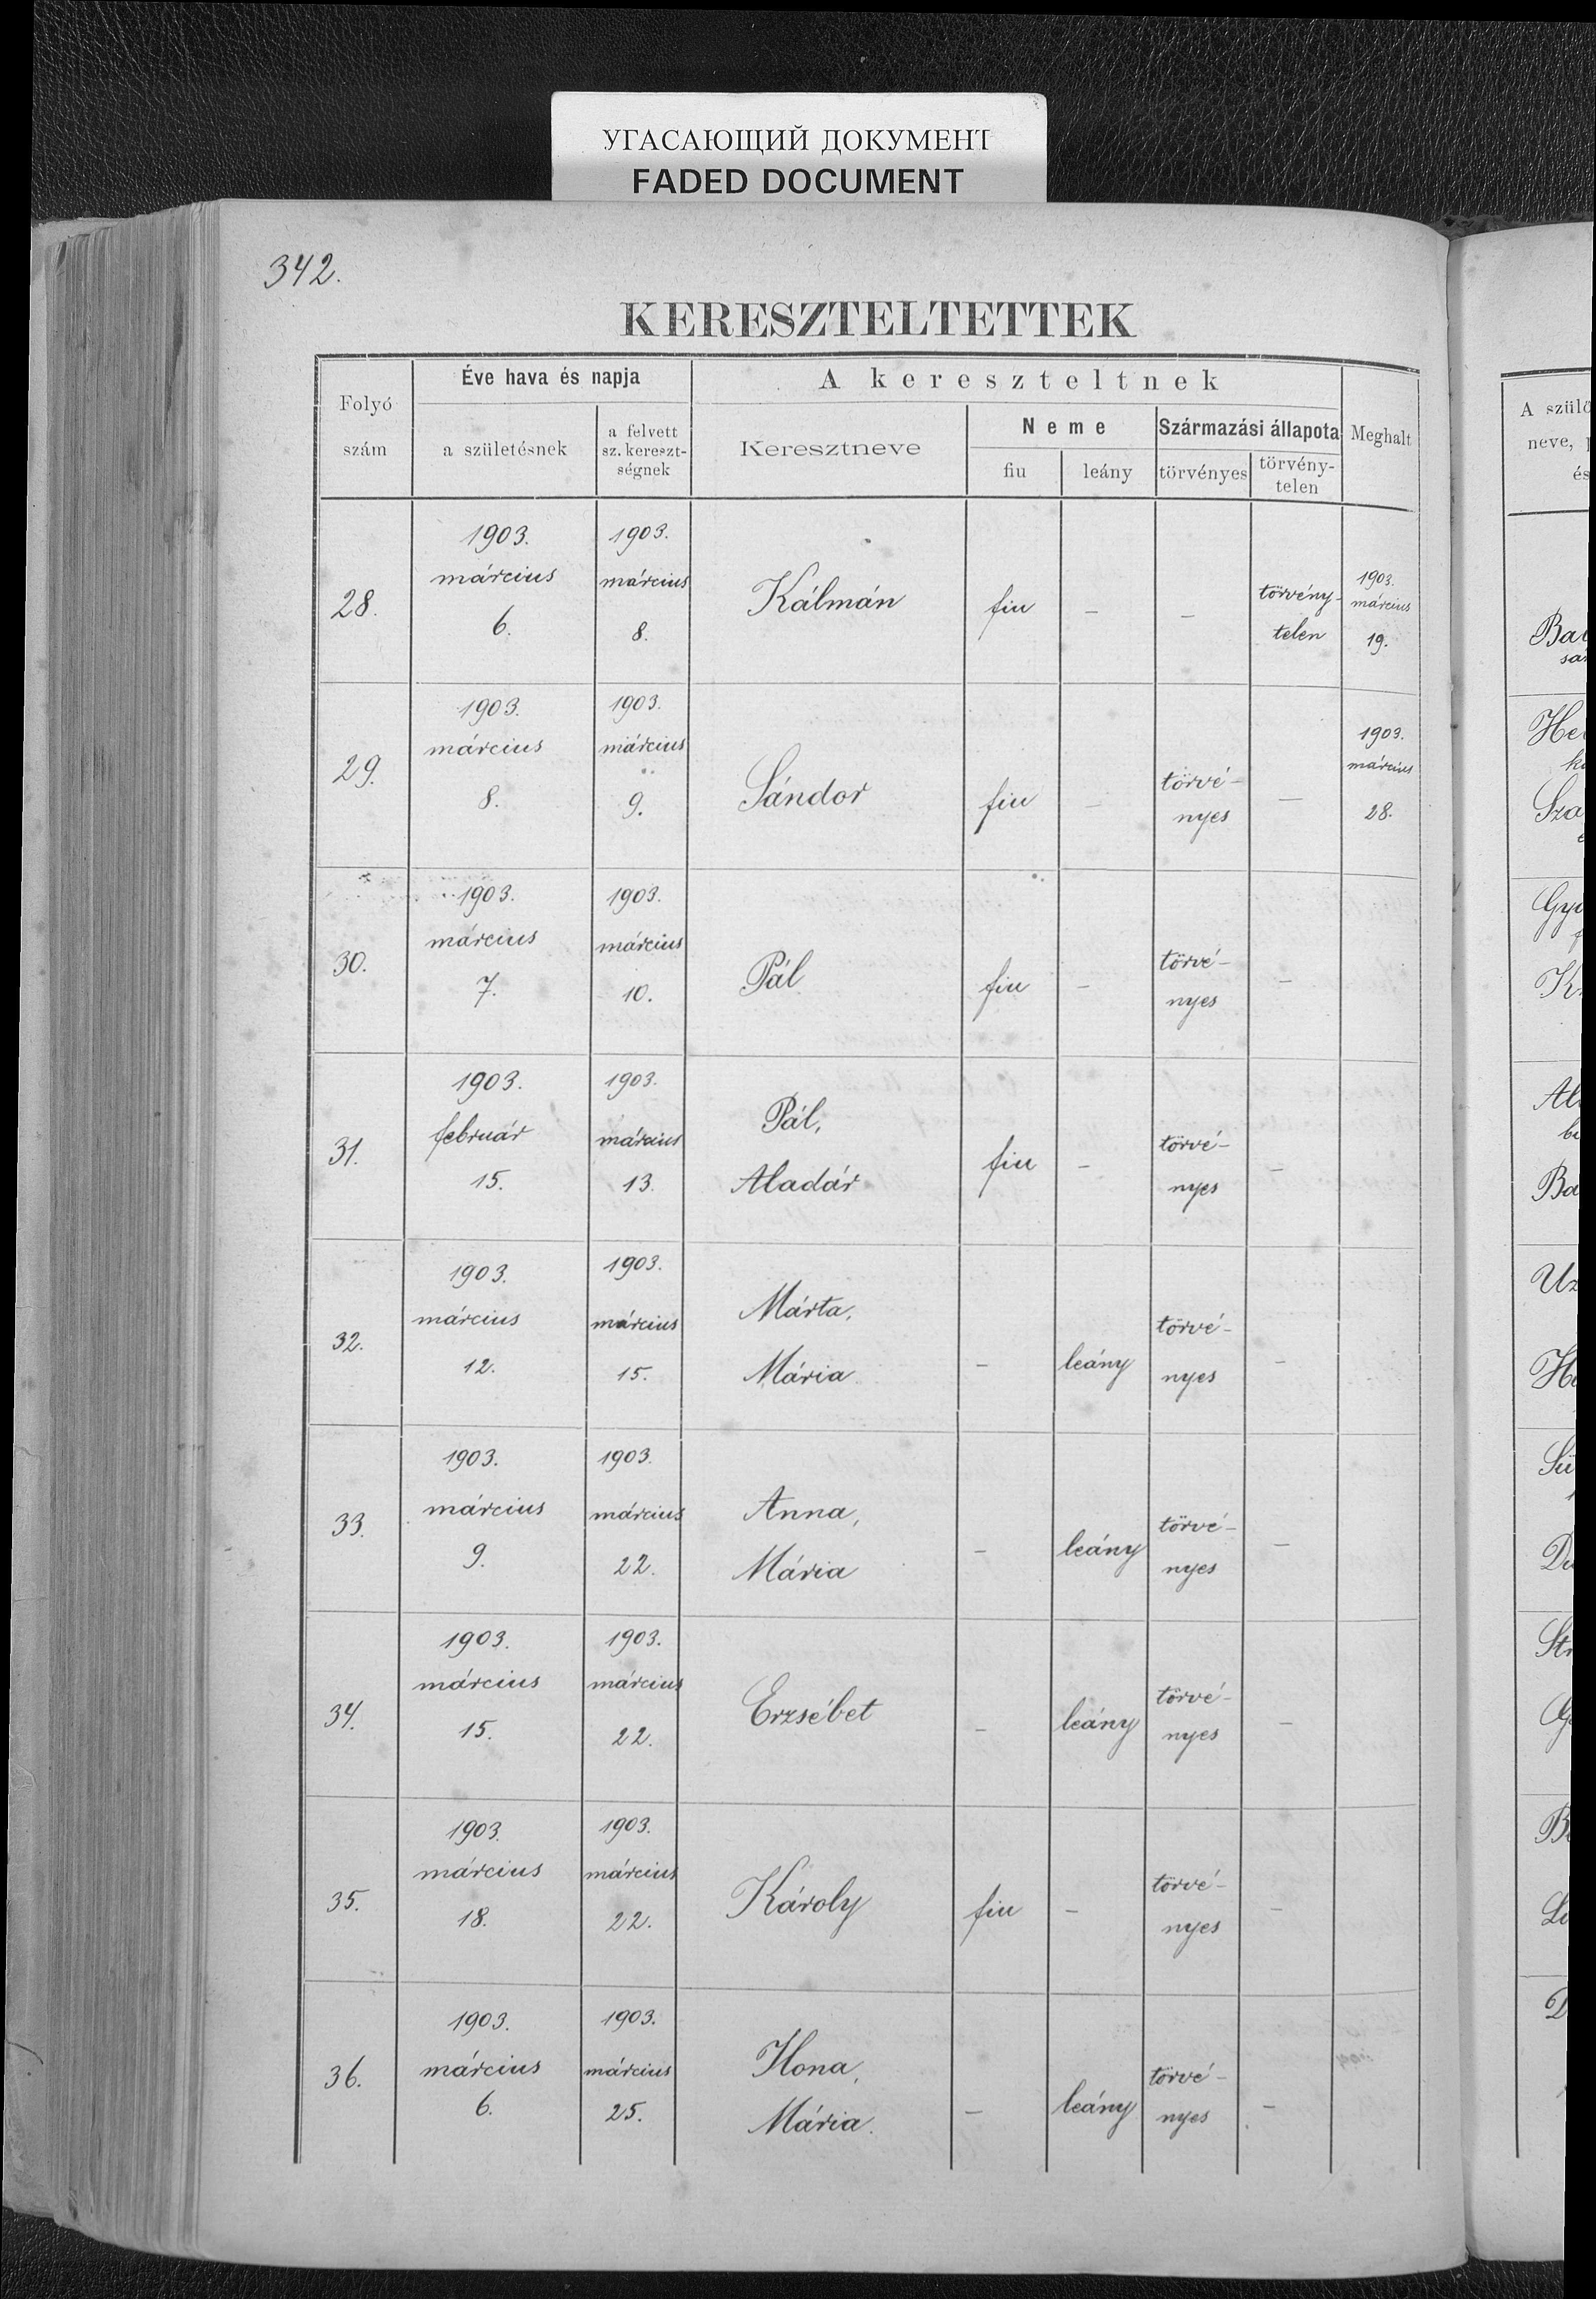 УГАСАЮЩИЙ ДОКУМЕНТ
FADED DOCUMENT
342.
KERESZTELTETTEK
Folyó szám
Éve hava és napja
a születésnek
a felvett sz. kereszt-ségnek
A kereszteltnek
Keresztneve
Neme
fiu
leány
Származási állapota
törvényes
törvény-telen
Meghalt
28. 1903. március 6. 1903. március 8. Kálmán fiu - - törvény-telen 1903. március 19.
29. 1903. március 8. 1903. március 9. Sándor fiu - törvé-nyes - 1903. március 28.
30. 1903. március 7. 1903. március 10. Pál fiu - törvé-nyes -
31. 1903. február 15. 1903. március 13. Pál, Aladár fiu - törvé-nyes -
32. 1903. március 12. 1903. március 15. Márta, Mária - leány törvé-nyes -
33. 1903. március 9. 1903. március 22. Anna, Mária - leány törvé-nyes -
34. 1903. március 15. 1903. március 22. Erzsébet - leány törvé-nyes -
35. 1903. március 18. 1903. március 22. Károly fiu - törvé-nyes -
36. 1903. március 6. 1903. március 25. Ilona, Mária. - leány törvé-nyes -
A szülő
neve,
és